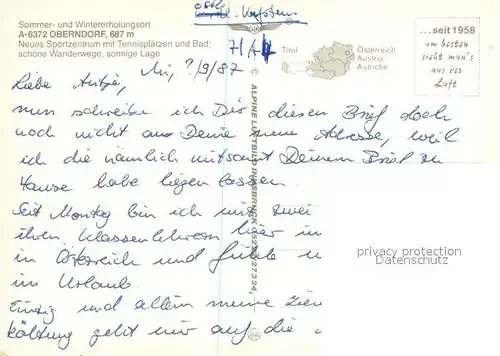 Sommer- und Wintererholungsort
A-6372 OBERNDORF, 687 m
Neues Sportzentrum mit Tennisplätzen und Bad;
schöne Wanderwege, sonnige Lage
Tirol
Österreich
Austria
Autriche
...seit 1958
am besten
sieht man's
aus der
Luft
Mi, ?/9/87
Liebe Antje,
nun schreibe ich Dir diesen Brief doch
noch nicht an Deine neue Adresse, weil
ich die nämlich mitsamt Deinem Brief zu
Hause habe liegen lassen.
Seit Montag bin ich mit zwei
ihren Klassenlehrern hier in
in Österreich und fühle
im Urlaub.
Einzig und allein meine
kältung geht mir auf die
© ALPINE LUFTBILD INNSBRUCK
privacy protection
Datenschutz